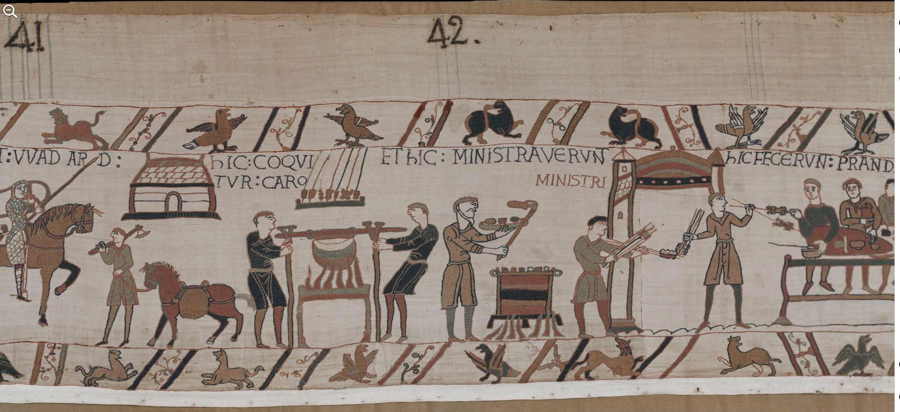 41
42.
T: VVADARD:
hIC: COQVI
TVR: CARO
ET hIC: MINISTRAVERVN
MINISTRI
hIC FECERVN: PRAND